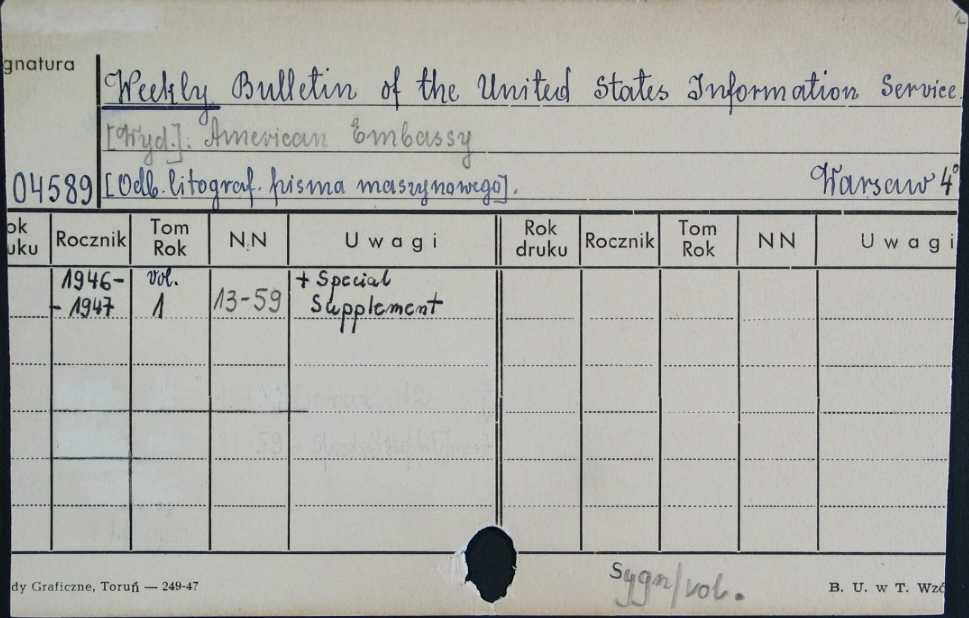 gnatura
Weekly Bulletin of the United States Information Service
[Wyd.]: American Embassy
04589 [Odb. litograf. pisma maszynowego]. Warsaw 4°
ok uku Rocznik Tom Rok NN Uwagi Rok druku Rocznik Tom Rok NN Uwagi
1946- vol. + Special
- 1947 1 13-59 Supplement
Sygn/vol.
dy Graficzne, Toruń — 249-47 B. U. w T. Wzó